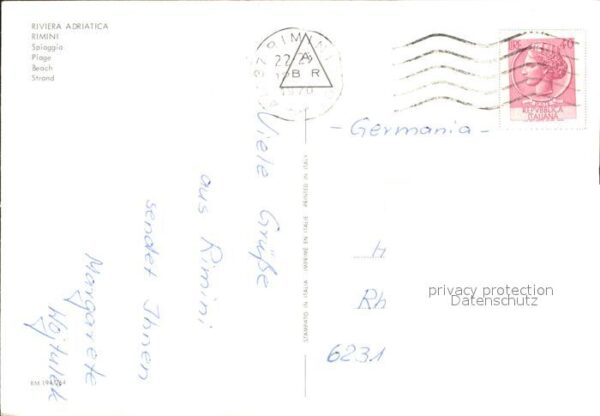 RIVIERA ADRIATICA
RIMINI
Spiaggia
Plage
Beach
Strand
RIMINI
22-23
1970
A
BR
LIRE 40
REPVBBLICA
ITALIANA
- Germania -
Viele Grüße
aus Rimini
sendet Ihnen
Margarete
Wojtulek
STAMPATO IN ITALIA IMPRIMÉ EN ITALIE PRINTED IN ITALY
H
Rh
6231
privacy protection
Datenschutz